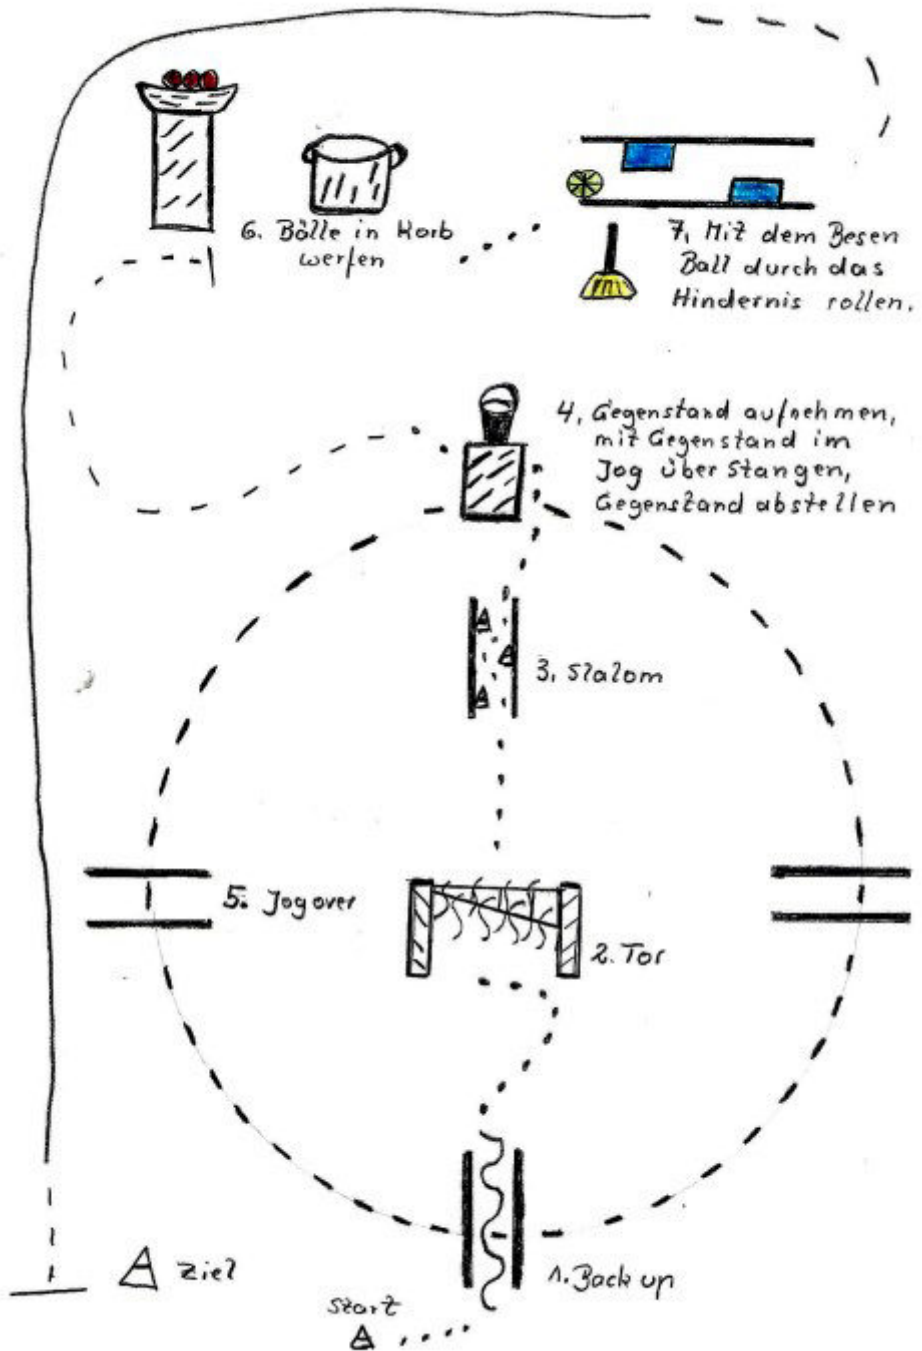 6. Bälle in Korb
werfen
7. Mit dem Besen
Ball durch das
Hindernis rollen.
4. Gegenstand aufnehmen,
mit Gegenstand im
Jog über Stangen,
Gegenstand abstellen
3. Slalom
5. Jog over
2. Tor
1. Back up
Ziel
Start